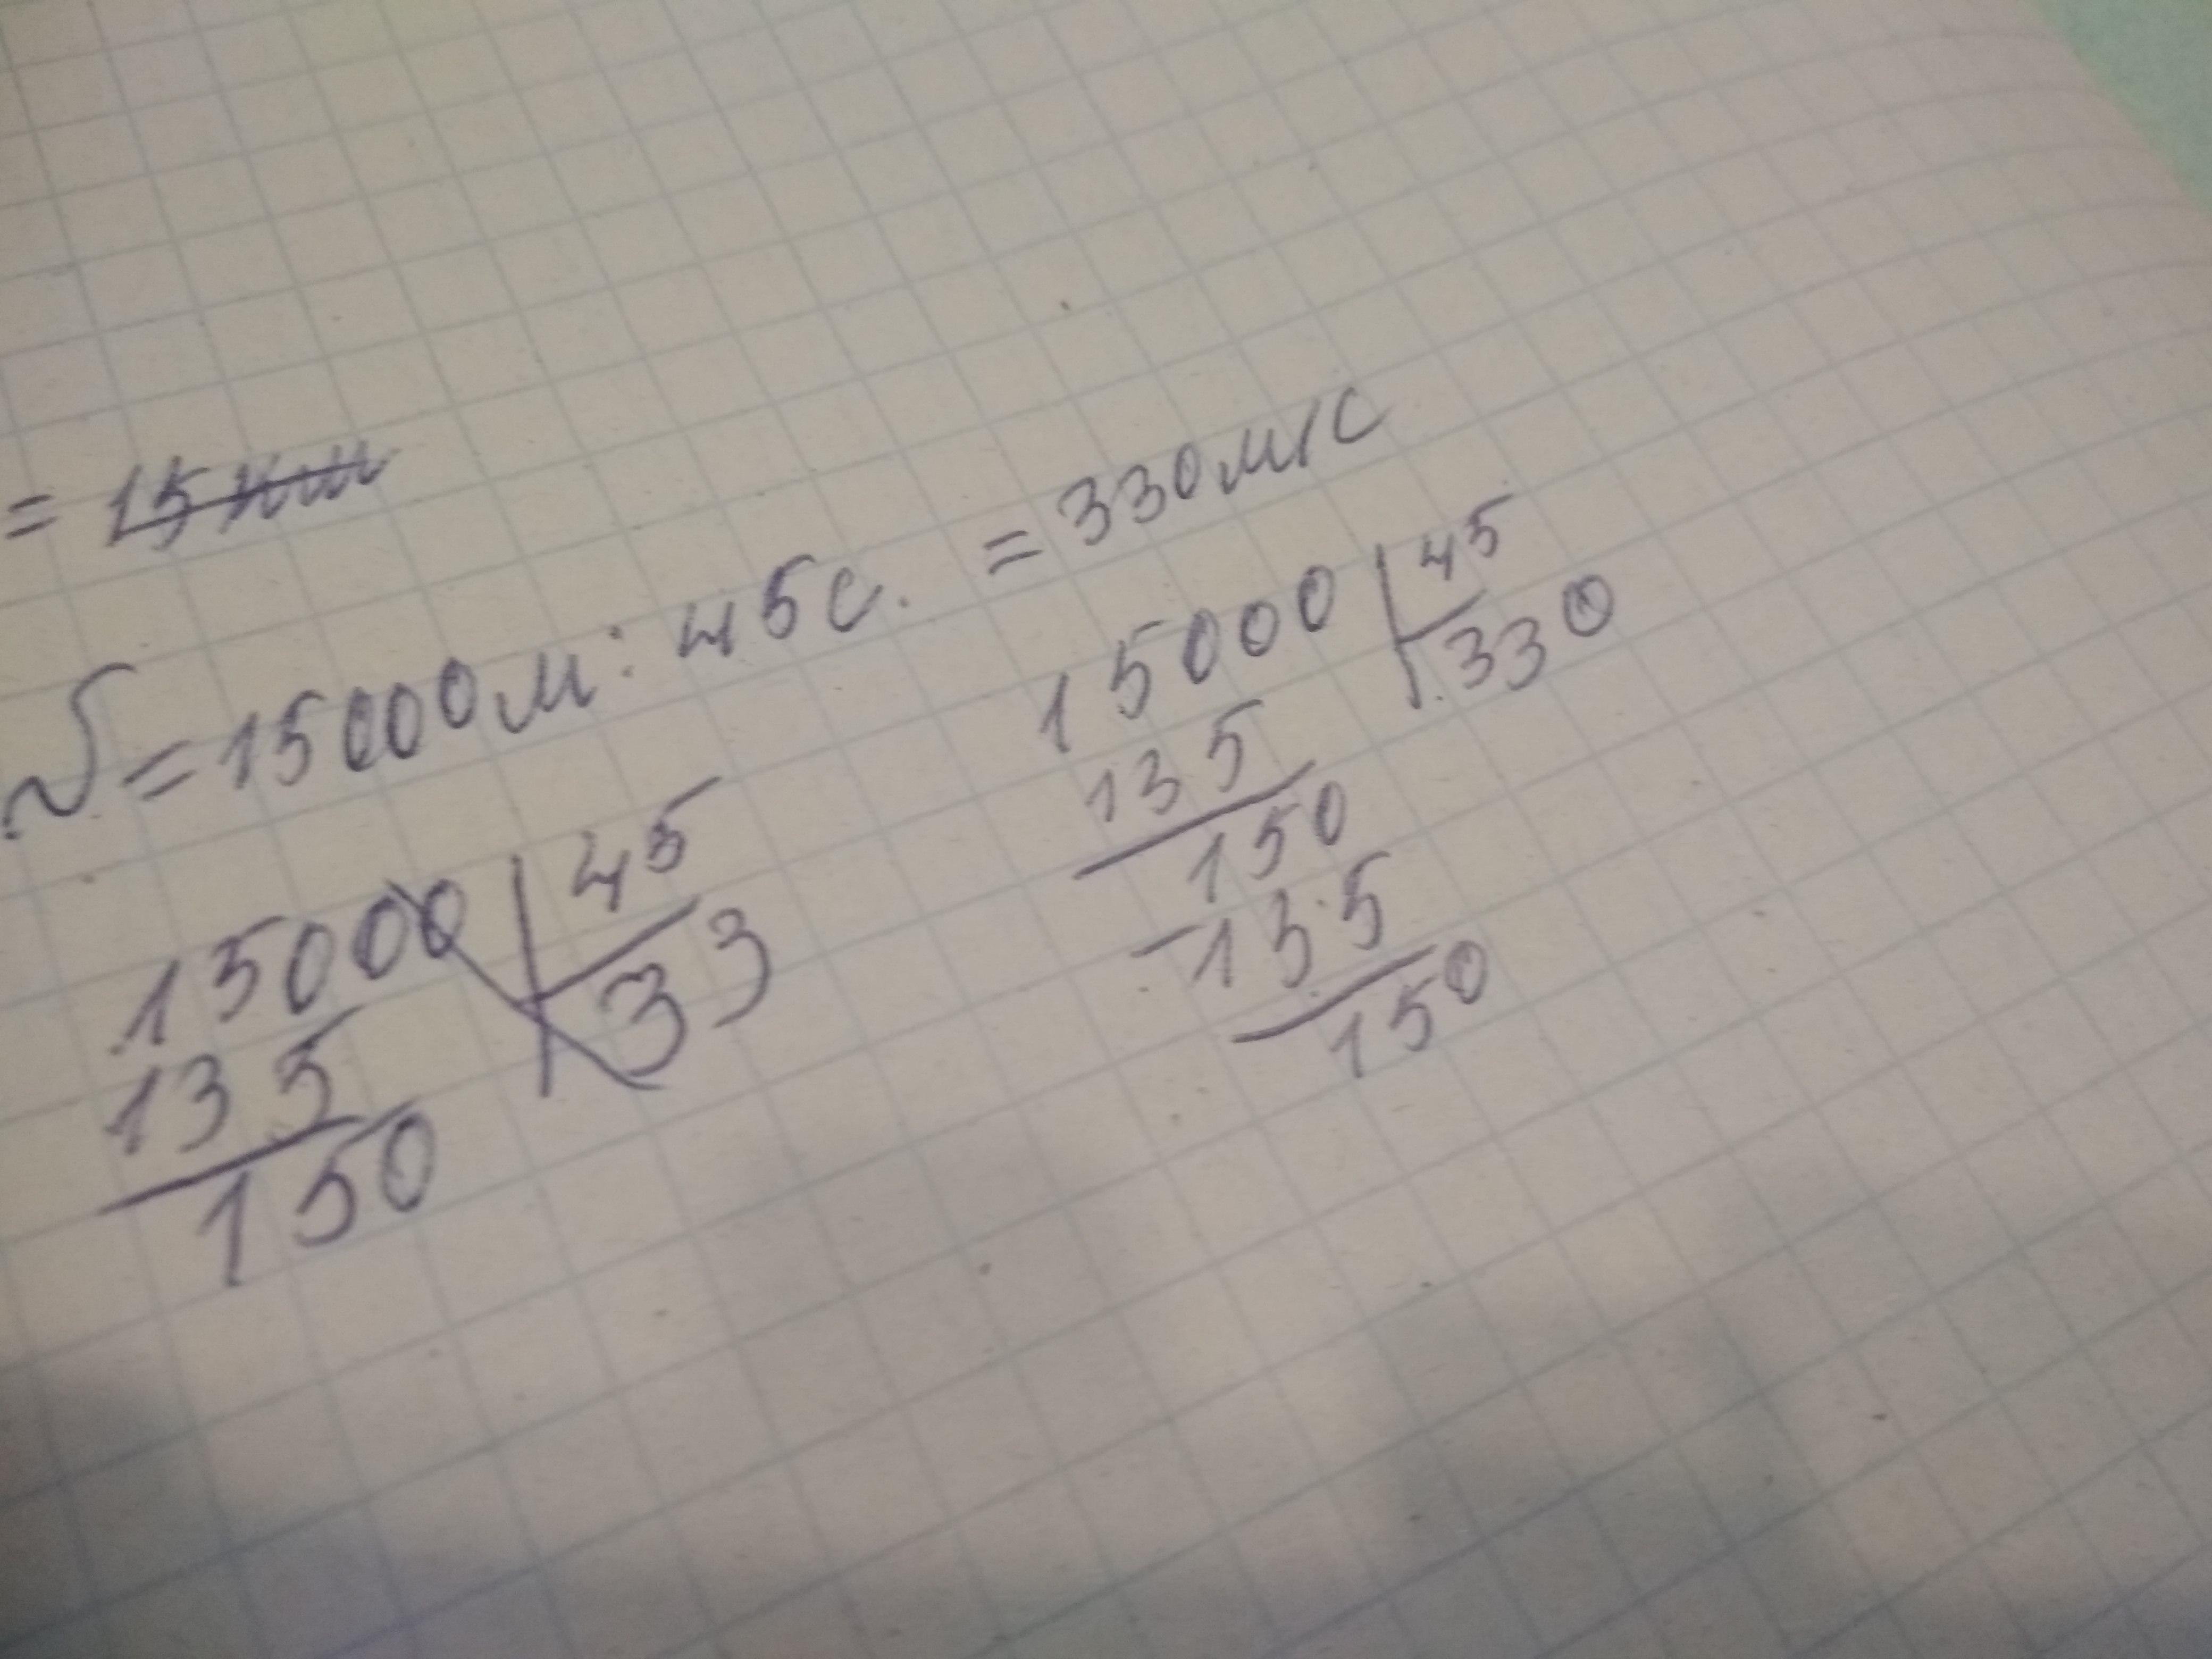 = 15 км
v = 15000м : 45с. = 330м/с
15000 45
135 33
150
15000 45
135 330
150
-135
150